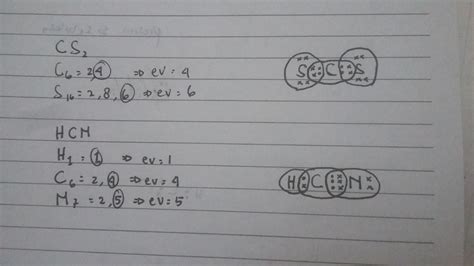 CS₂
C₆ = 2,4 ⇒ ev = 4
S₁₆ = 2,8,6 ⇒ ev = 6
S C S
HCN
H₁ = 1 ⇒ ev = 1
C₆ = 2,4 ⇒ ev = 4
N₇ = 2,5 ⇒ ev = 5
H C N